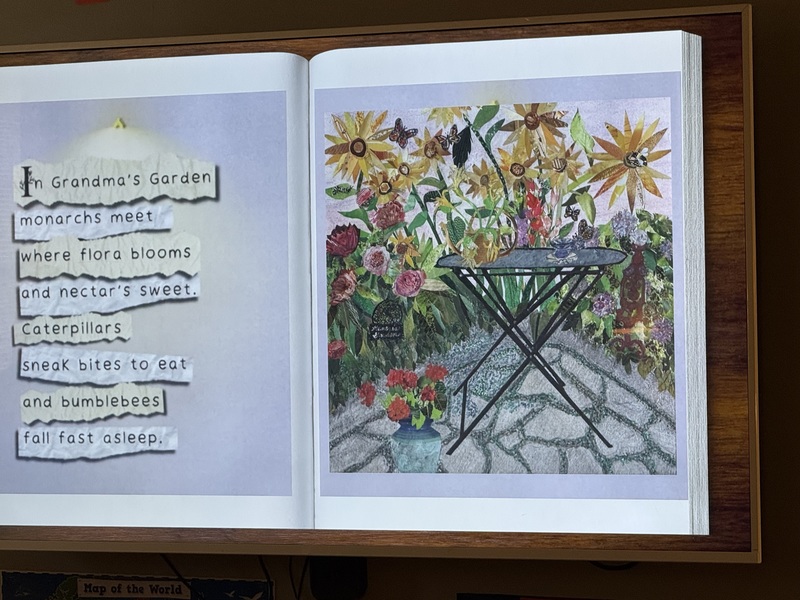 In Grandma's Garden
monarchs meet
where flora blooms
and nectar's sweet.
Caterpillars
sneak bites to eat
and bumblebees
fall fast asleep.
Map of the World